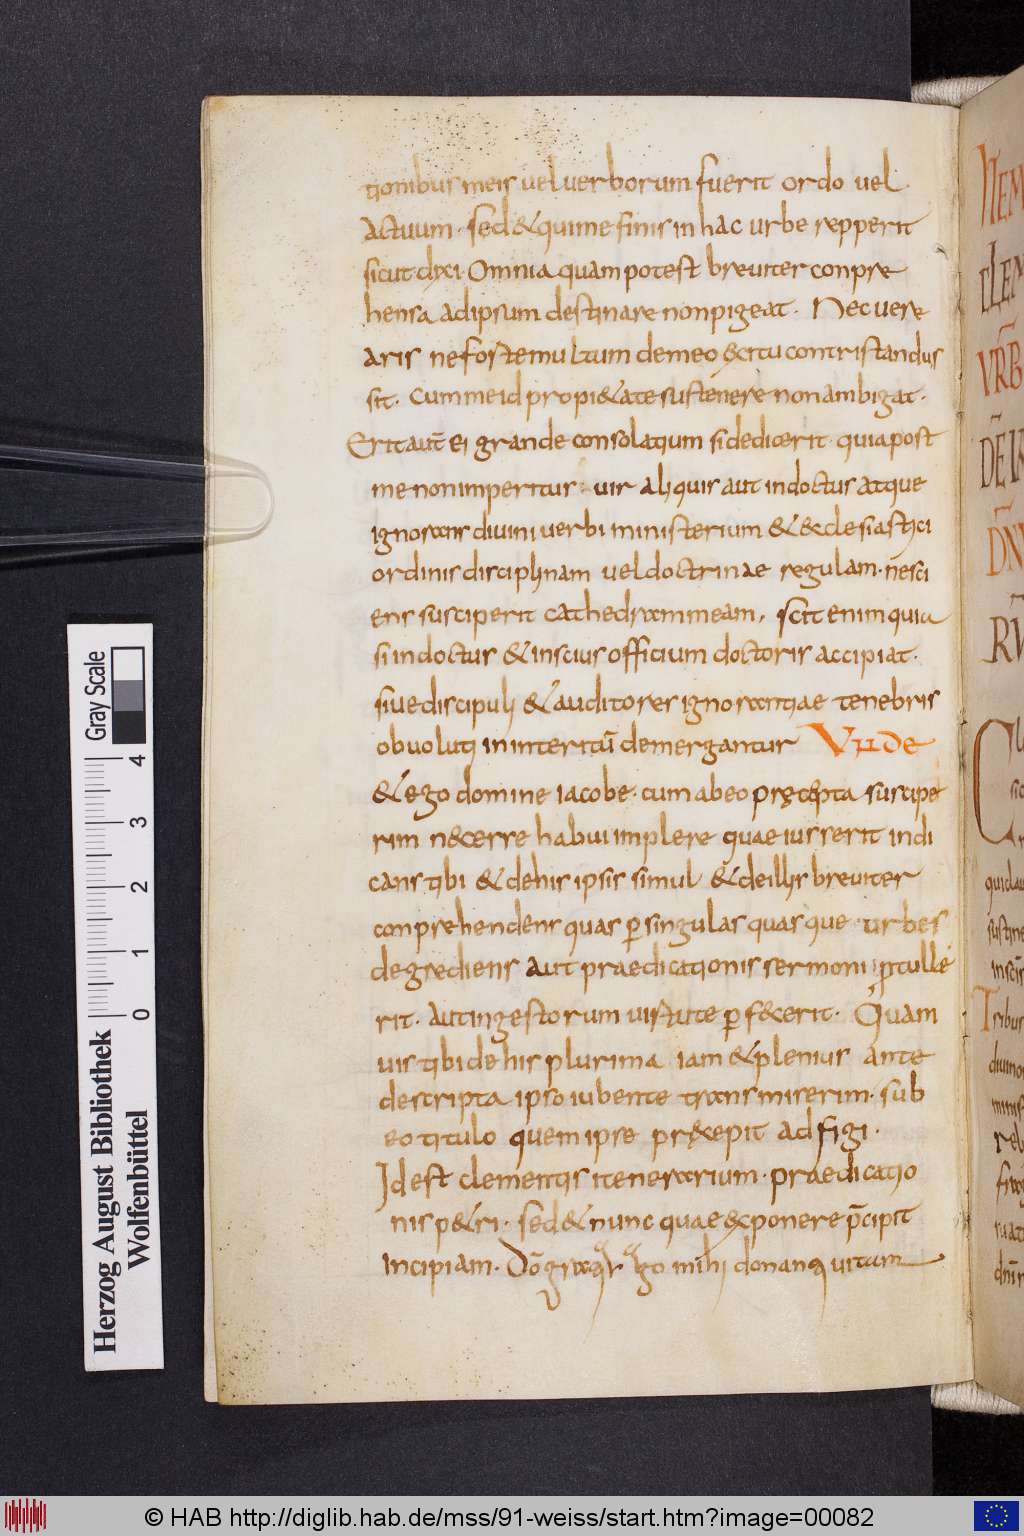 tionibus meis vel verborum fuerit ordo vel
actuum · sed & qui me finis in hac urbe repperit
sicut dixi · Omnia quam potest breviter conpre
hensa ad ipsum destinare non pigeat · Nec vere
aris ne forte multum de meo exitu contristandus
sit · cum me id pro pi&ate sustenere non ambigat ·
Erit aut̄ ei grande consolatium si dedicerit · quia post
me non imperitus vir aliquis aut indoctus atque
ignorans divini verbi ministerium & ecclesiastici
ordinis disciplinam vel doctrinae regulam · nesci
ens susciperit cathedram meam, scit enim quia
si indoctus & inscius officium doctoris accipiat ·
sive discipuli & auditores ignorantiae tenebris
obvoluti in interitū demergantur Unde
& ego domine iacobe · cum ab eo pręcepta suscipe
rim necesse habui implere quae iusserit indi
cans tibi & de his ipsis simul & de illis breviter
conprehendens quas p̱ singulas quasque urbes
degrediens aut praedicationis sermoni ptulle
rit · aut in gestorum uirtute p̱fecerit · Quam
vis tibi de his plurima iam & plenius ante
descripta ipso iubente transmiserim · sub
eo titulo quem ipse pręcepit adfigi ·
Id est clementis itenerarium · praedicatio
nis p&ri · sed & nunc quae exponere p̄cipit
incipiam · Dō gratias ago mihi donanti vitam
Herzog August Bibliothek
Wolfenbüttel
Gray Scale
0 1 2 3 4
© HAB http://diglib.hab.de/mss/91-weiss/start.htm?image=00082